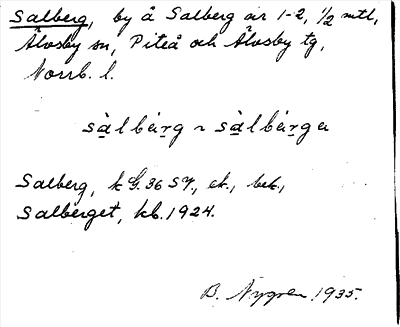 Salberg, by å Salberg nr 1-2, 1/2 mtl,
Älvsby sn, Piteå och Älvsby tg,
Norrb. l.
sàlbærg ~ sàlbærga
Salberg, k G. 36 SV, ek., bek.,
Salberget, kb. 1924.
B. Nygren 1935.